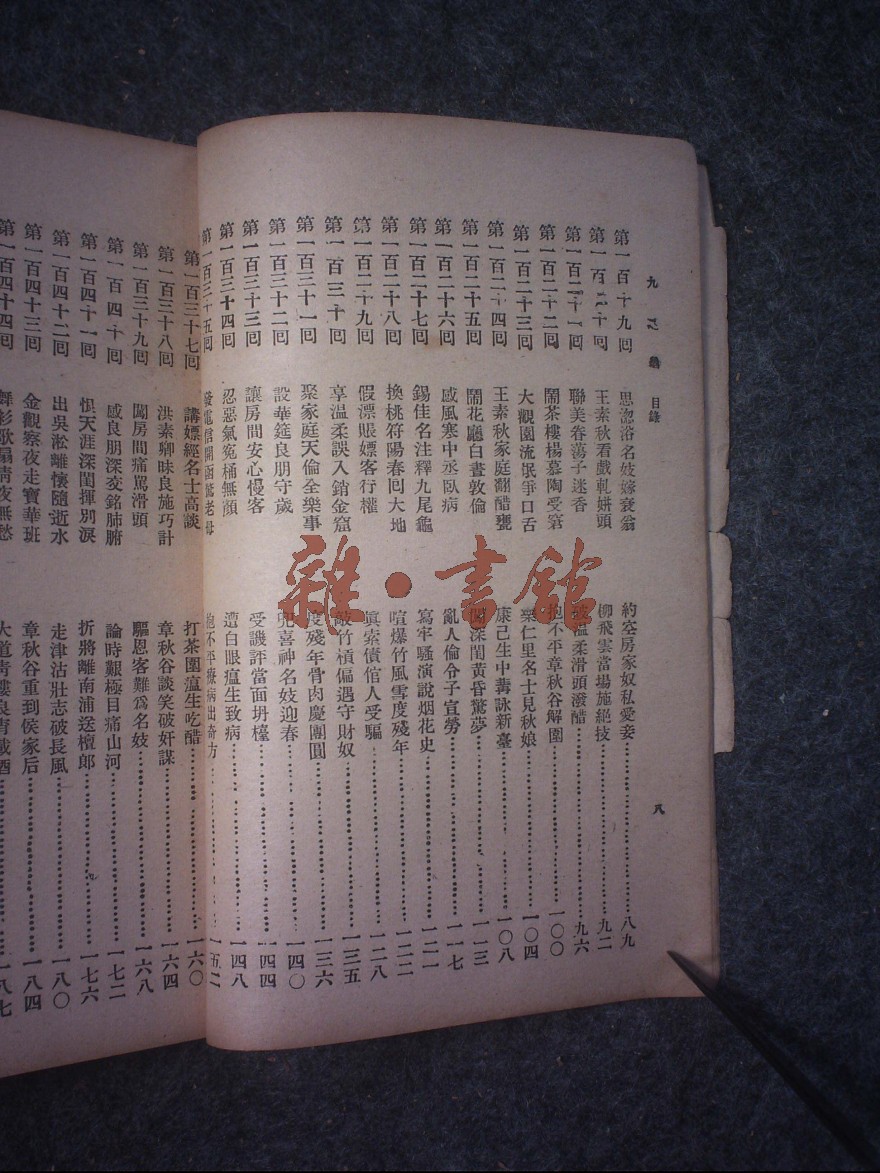 九 龜 目錄
八
第一百十九回 思淴浴名妓嫁衰翁 約空房家奴私愛妾 八九
第一百二十回 王素秋看戲軋姘頭 柳飛雲當場施絕技 九二
第一百二十一回 聯美眷蕩子迷香 破溫柔滑頭潑醋 九六
第一百二十二回 鬧茶樓楊慕陶受窘 抱不平章秋谷解圍 一〇〇
第一百二十三回 大觀園流氓爭口舌 樂仁里名士見秋娘 一〇四
第一百二十四回 王素秋家庭翻醋甕 康己生中冓詠新臺 一〇八
第一百二十五回 鬧花廳白晝敦倫 深閨黃昏驚夢 一一三
第一百二十六回 感風寒中丞臥病 亂人倫令子宣勞 一一七
第一百二十七回 錫佳名注釋九尾龜 寫牢騷演說烟花史 一二一
第一百二十八回 換桃符陽春回大地 喧爆竹風雪度殘年 一二二
第一百二十九回 假漂賬嫖客行權 眞索債倌人受騙 一二八
第一百三十回 享溫柔誤入銷金窟 敲竹槓偏遇守財奴 一三五
第一百三十一回 聚家庭天倫全樂事 度殘年骨肉慶團圓 一三六
第一百三十二回 設華筵良朋守歲 兜喜神名妓迎春 一四〇
第一百三十三回 讓房間安心慢客 受譏評當面坍檯 一四四
第一百三十四回 忍惡氣寃桶無顏 遭白眼瘟生致病 一四八
第一百三十五回 發電信開函驚老母 抱不平療病出奇方 一五二
第一百三十七回 講嫖經名士高談 打茶圍瘟生吃醋 一六〇
第一百三十八回 洪素卿昧良施巧計 章秋谷談笑破奸謀 一六四
第一百三十九回 闖房間痛罵滑頭 驅恩客難爲名妓 一六八
第一百四十回 感良朋深交銘肺腑 論時艱極目痛山河 一七二
第一百四十一回 恨天涯深閨揮別淚 折將離南浦送檀郎 一七六
第一百四十二回 出吳淞離懷隨逝水 走津沽壯志破長風 一八〇
第一百四十三回 金觀察夜走寶華班 章秋谷重到侯家后 一八四
第一百四十四回 舞衫歌扇淸夜無愁 大道靑樓良宵載酒 一八七
雜·書館